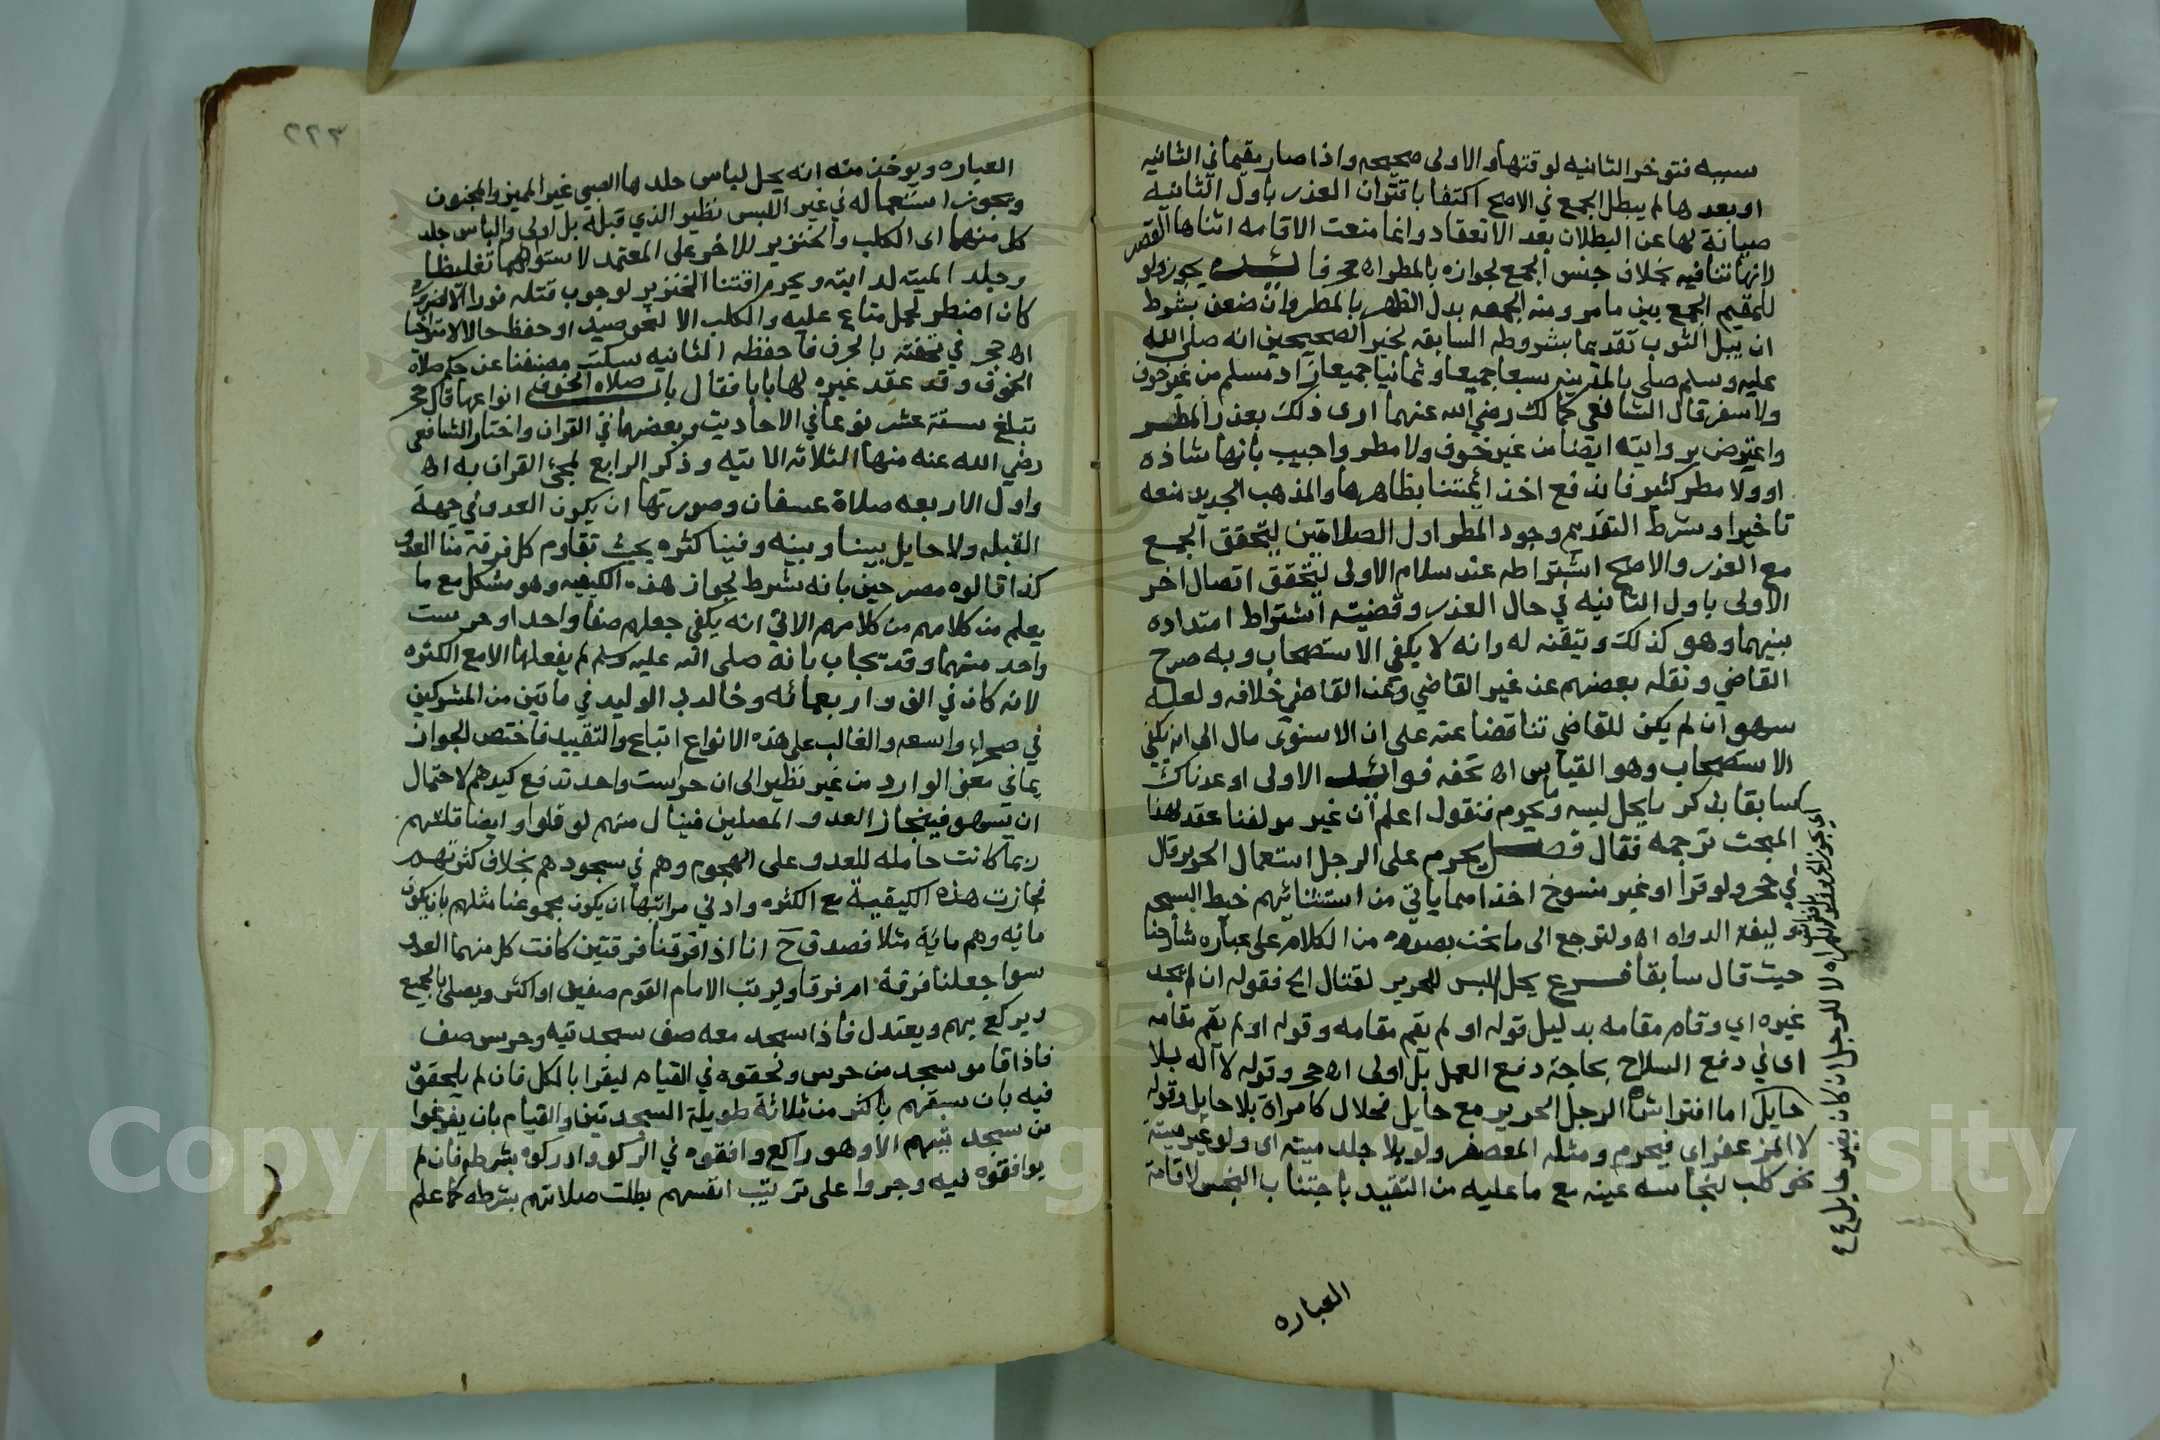 سببه فتوخر الثانيه لوقتها والاولى صحيحه واذا صار مقيما في الثانيه
او بعدها لم يبطل الجمع في الاصح اكتفا باقتران العذر باول الثانيه
صيانة لها عن البطلان بعد الانعقاد وانما منعت الاقامه اثناها القصر
لانها تنافيه بخلاف جنس الجمع لجوازه بالمطر اه حجر يجوز ولو
للمقيم الجمع بين ما مر ومنه الجمعه بدل الظهر بالمطر وان ضعف بشرط
ان يبل الثوب تقديما بشروطه السابقه لخبر الصحيحين انه صلى الله
عليه وسلم صلى بالمدينه سبعا جميعا وثمانيا جميعا زاد مسلم من غير خوف
ولا سفر قال الشافعي كمالك رضي الله عنهما ارى ذلك بعذر المطر
واعترض بروايته ايضا من غير خوف ولا مطر واجيب بانها شاذه
او ولا مطر كثير فاندفع اخذ ائمتنا بظاهرها والمذهب الجديد منعه
تاخيرا وشرط التقديم وجود المطر اول الصلاتين ليتحقق الجمع
مع العذر والاصح اشتراطه عند سلام الاولى ليتحقق اتصال اخر
الاولى باول الثانيه في حال العذر وقضيته اشتراط امتداده
بينهما وهو كذلك وتيقنه له وانه لا يكفي الاستصحاب وبه صرح
القاضي ونقله بعضهم عن غير القاضي وعن القاضي خلافه ولعله
سهو ان لم يكن للقاضي تناقضا عنه على ان الاسنوى مال الى انه يكفي
الاستصحاب وهو القياس اه تحفه الاولى اوعدناك
سابقا بذكر ما يحل لبسه ويحرم فنقول اعلم ان غير مولفنا عقد لهذا
المبحث ترجمه فقال فصل يحرم على الرجل استعمال الحرير قال
في حجر ولو قزا او غير منسوخ اخذا مما ياتي من استثنائهم خيط السبحه
وليقة الدواه اه ولنرجع الى ما نحن بصدده من الكلام على عبارة شارحنا
حيث قال سابقا فرع يحل لبس الحرير لقتال الخ فقوله ان لم نجد
غيره اي وقام مقامه بدليل قوله او لم يقم مقامه وقوله او لم يقم مقامه
اى في دفع السلاح بحاجة دفع العمل بل اولى اه حجر وقوله لا اله بلا
حايل اما افتراش الرجل الحرير مع حايل فحلال كامراة بلا حايل وقوله
لا المزعفر اى فيحرم ومثله المعصفر ولو بلا جلد ميته اى ولو غير ميتة
نحو كلب لنجاسه عينه مع ما عليه من التقيد باجتناب النجس لاقامة
للرجل ان كان بغير حايل ٤٤
العباره
٢٢٣
العباره ويوخذ منه انه يحل لباس جلدها الصبي غير المميز والمجنون
ويجوز استعماله في غير اللبس نظير الذي قبله بل اولى والباس جلد
كل منهما اى الكلب والخنزير للاخر على المعتمد لاستوائهما تغليظا
وجلد الميته لدابته ويحرم اقتنا الخنزير لوجوب قتله فورا الا لضرورة
كان اضطر لحمل متاع عليه والكلب الا لنحو صيد او حفظ حالا لا متوقعا
اه حجر في تحفته بالحرف فاحفظه الثانيه سكت مصنفنا عن حكم صلاة
الخوف وقد عقد غيره لها بابا فقال باب صلاه الخوف انواعها قال حجر
تبلغ ستة عشر نوعا في الاحاديث وبعضها في القران واختار الشافعي
رضي الله عنه منها الثلاثه الاتيه وذكر الرابع لمجئ القران به اه
واول الاربعه صلاة عسفان وصورتها ان يكون العدو في جهة
القبله ولا حايل بيننا وبينه وفينا كثره بحيث تقاوم كل فرقه منا العدو
كذا قالوه مصرحين بانه شرط لجواز هذه الكيفيه وهو مشكل مع ما
يعلم من كلامهم من كلامهم الاتي انه يكفي جعلهم صفا واحدا وحرست
واحد منهما وقد يجاب بانه صلى الله عليه وسلم لم يفعلها الا مع الكثره
لانه كان في الف واربعمائه وخالد بن الوليد في ماتين من المشركين
في صحراء واسعه والغالب على هذه الانواع اتباع والتقييد فاختص الجواز
بما في معنى الوارد من غير نظير الى ان حراست واحد تدفع كيدهم لاحتمال
ان يسهو فيفجاز العدو المصلين فينال منهم لو قلوا وايضا قلتهم
ربما كانت حامله للعدو على الهجوم وهم في سجودهم بخلاف كثرتهم
فجازت هذه الكيفية مع الكثره وادني مراتبها ان يكون مجموعنا مثلهم بان يكون
مائه وهم مائة مثلا فصدق ح انا اذا فرقنا فرقتين كانت كل منهما العدو
سوا جعلنا فرقة ام فرقا ويرتب الامام القوم صفين او اكثر ويصلي بالجميع
ويركع بهم ويعتدل فاذا سجد معه صف سجدتيه وحرس صف
فاذا قامو سجد من حرس ولحقوه في القيام ليقرا بالكل فان لم يلحقوه
فيه بان سبقهم باكثر من ثلاثة طويلة السجدتين والقيام بان يفرغوا
من سجدتيهم الا وهو راكع وافقوه في الركوع وادركوه بشرطه فان لم
يوافقوه فيه وجروا على ترتيب انفسهم بطلت صلاتهم بشرطه كما علم